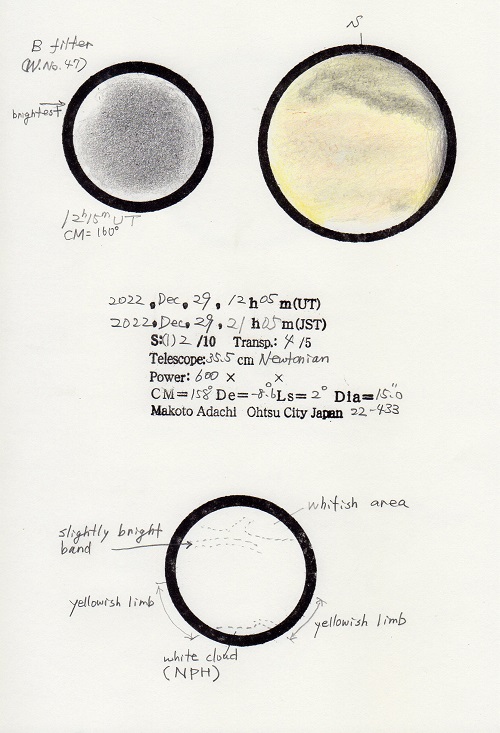 S
B filter
(W.No.47)
brightest
12h15m UT
CM=160°
2022, Dec, 29, 12h05m(UT)
2022, Dec, 29, 21h05m(JST)
S:(1)2/10 Transp.: 4/5
Telescope: 35.5 cm Newtonian
Power: 600 × ×
CM=158° De=-8.6° Ls=2° Dia=15.0"
Makoto Adachi Ohtsu City Japan 22-433
whitish area
slightly bright
band
yellowish limb
yellowish limb
white cloud
(NPH)